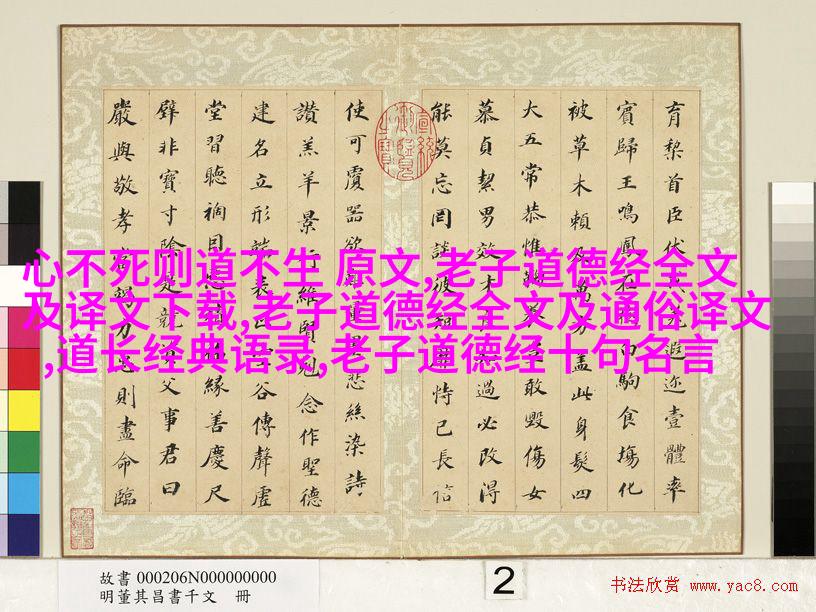 育黎首臣伏戎羌遐迩壹體率
賓歸王鳴鳳在樹白駒食塲化
被草木賴及萬方盖此身髮四
大五常恭惟鞠養豈敢毀傷女
慕貞絜男效才良知過必改得
能莫忘罔談彼短靡恃己長信
使可覆器欲難量墨悲絲染詩
讚羔羊景行維賢剋念作聖德
建名立形端表正空谷傳聲虛
堂習聽禍因惡積福緣善慶尺
璧非寶寸陰是競資父事君曰
嚴與敬孝當竭力忠則盡命臨
心不死则道不生 原文,老子道德经全文
及译文下载,老子道德经全文及通俗译文
,道长经典语录,老子道德经十句名言
故書 000206N000000000
明董其昌書千文 冊
2
书法欣赏 www.yac8.com